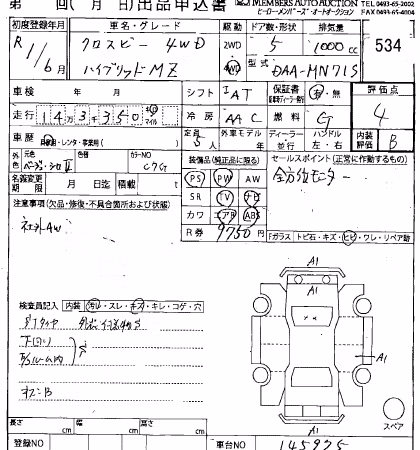 第 回( 月 日)出品申込書 MEMBERS AUTO AUCTION TEL 0493-65-2002
ヒーローメンバーズ・オートオークション FAX 0493-65-4004
初度登録年月 車名・グレード 駆動 ドア数・形状 排気量
R1/6 クロスビー 4WD 2WD 5 1000cc 534
ハイブリッドMZ 4WD DAA-MN71S
車検 年 月 シフト IAT 保証書 有・無 評価点
走行 143,350 km マイル 冷房 AAC 燃料 G 4
車歴 自家用・レンタ・事業用( ) 定員 5人 外車モデル 年 ディーラー 並行 ハンドル 左・右 内装評価 B
外色 元色 色替 カラーNO C7G
装備品(純正品に限る) セールスポイント(正常に作動するもの)
名義変更期限 月 日迄 積載 t
PS PW AW 全方位モニター
SR TV ナビ
注意事項(欠品・修復・不具合箇所および状態)
カワ エアB ABS
R券 9750円
Fガラス トビ石・キズ・ヒビ・ワレ・リペア跡
検査員記入 内装 汚れ・スレ・キズ・キレ・コゲ・穴
A1
A1
A1
A1
スペア
長さ cm 幅 cm 高さ cm
登録NO 車台NO 145975